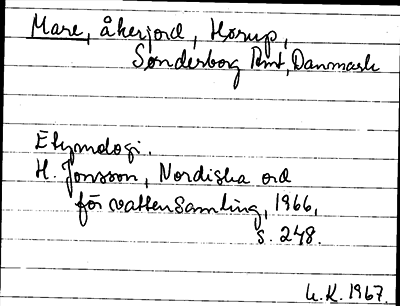 Mare, åkerjord, Hørup,
Sønderborg Amt, Danmark
Etymologi.
H. Jonsson, Nordiska ord
för vattensamling, 1966,
s. 248.
L.K. 1967.